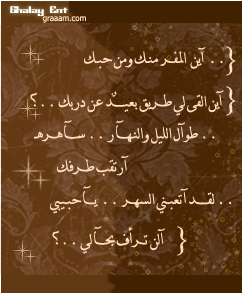 Ghalay Ent
graaam.com
. . آين المفر منك ومن حبك }
{ آين القى لي طريق بعيدٌ عن دربك . . ؟
. . طوآل الليل والنهآر . . سآهرهـ
آرتقب طرفك
. . لقد آتعبني السهر . . يآحبيبي
{ آلن ترأف بحآلي . . ؟